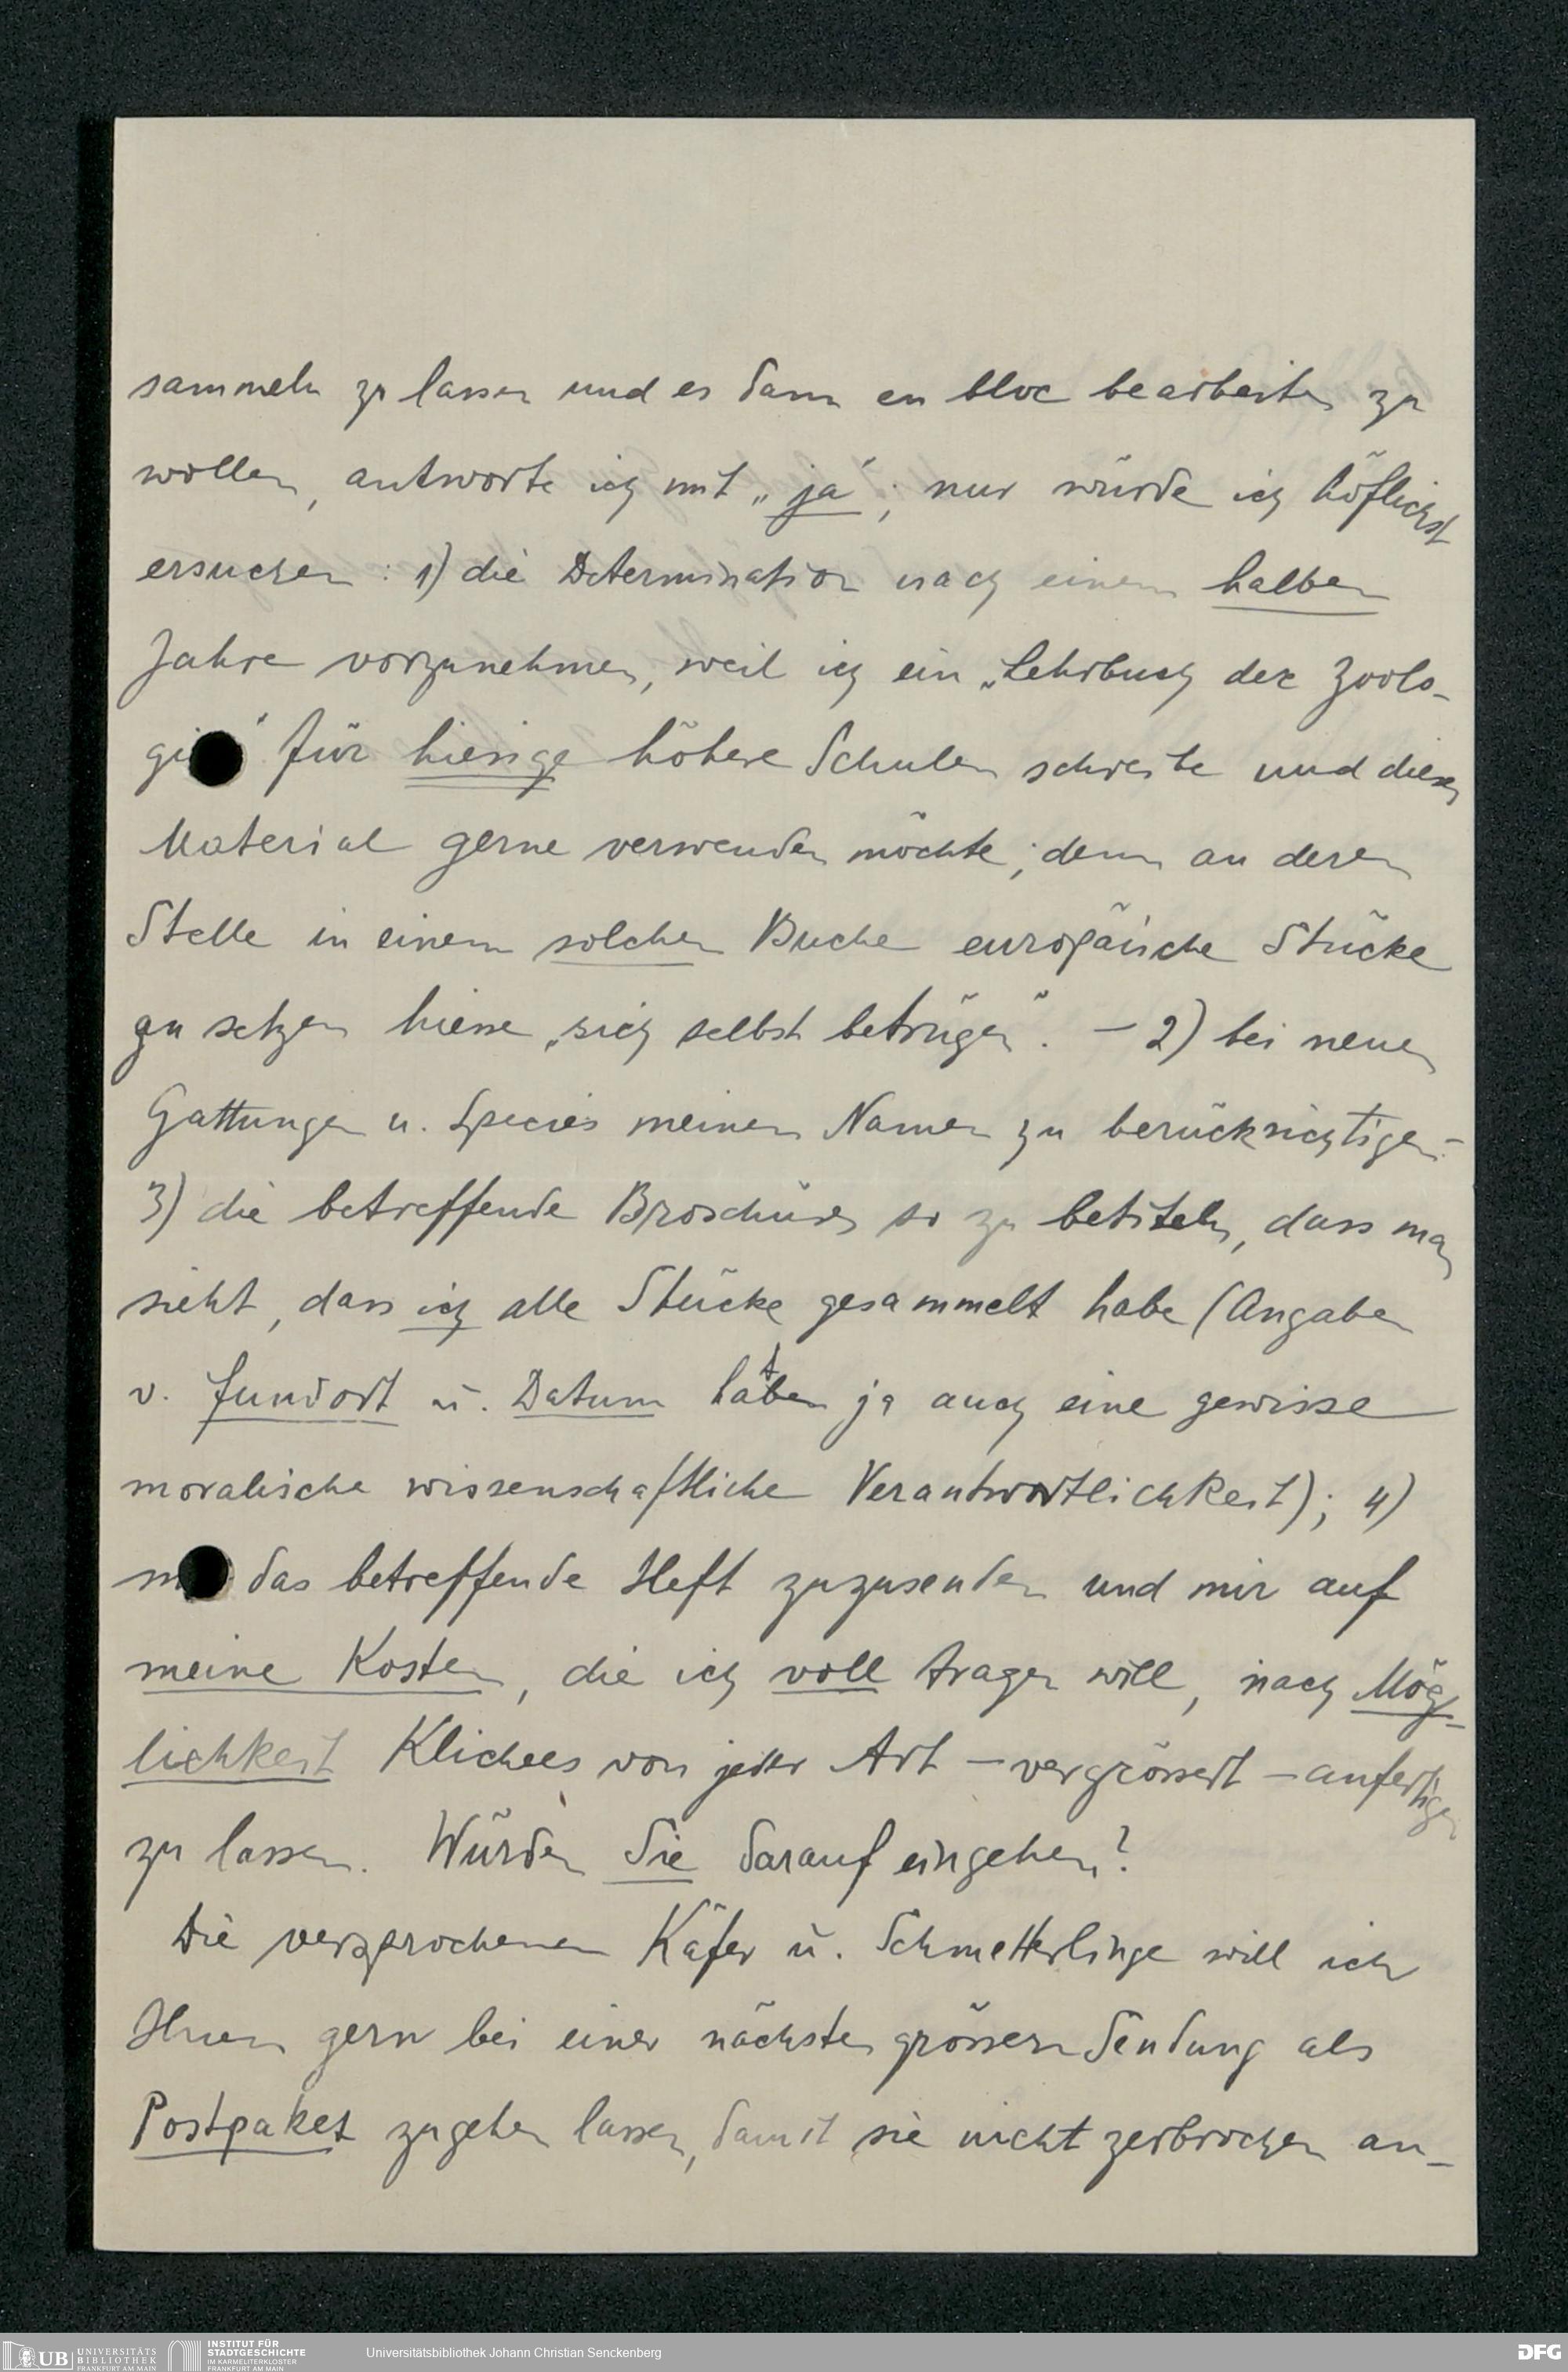 sammeln zu lassen und es dann en bloc bearbeiten zu
wollen, antworte ich mit „ja“; nur würde ich höflichst
ersuchen: 1) die Determination nach einem halben
Jahre vorzunehmen, weil ich ein „Lehrbuch der Zoolo-
gie“ für hiesige höhere Schulen schreibe und dieses
Material gerne verwenden möchte; denn an deren
Stelle in einem solchen Buche europäische Stücke
zu setzen hiesse „sich selbst betrügen“. – 2) bei neuen
Gattungen u. Species meinen Namen zu berücksichtigen. –
3) die betreffende Broschüre so zu betiteln, dass man
sieht, dass ich alle Stücke gesammelt habe (Angaben
v. Fundort u. Datum haben ja auch eine gewisse
moralische wissenschaftliche Verantwortlichkeit); 4)
das betreffende Heft zuzusenden und mir auf
meine Kosten, die ich voll tragen will, nach Mög-
lichkeit Klichees von jeder Art – vergrössert – anfertigen
zu lassen. Würden Sie darauf eingehen?
Die versprochenen Käfer u. Schmetterlinge will ich
Ihnen gern bei einer nächsten grössern Sendung als
Postpaket zugehen lassen, damit sie nicht zerbrochen an-
UB UNIVERSITÄTS BIBLIOTHEK FRANKFURT AM MAIN
INSTITUT FÜR STADTGESCHICHTE IM KARMELITERKLOSTER FRANKFURT AM MAIN
Universitätsbibliothek Johann Christian Senckenberg
DFG